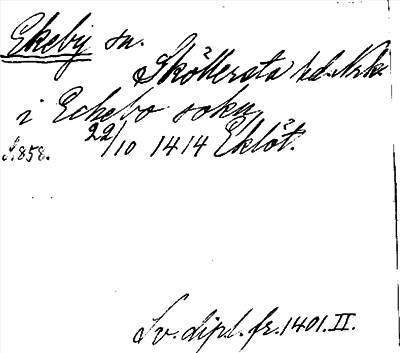 Ekeby sn.
Sköllersta hd. Nrk.
i Eckebo sokn
S. 858. 22/10 1414 Eklöt.
Sv. dipl. fr. 1401. II.